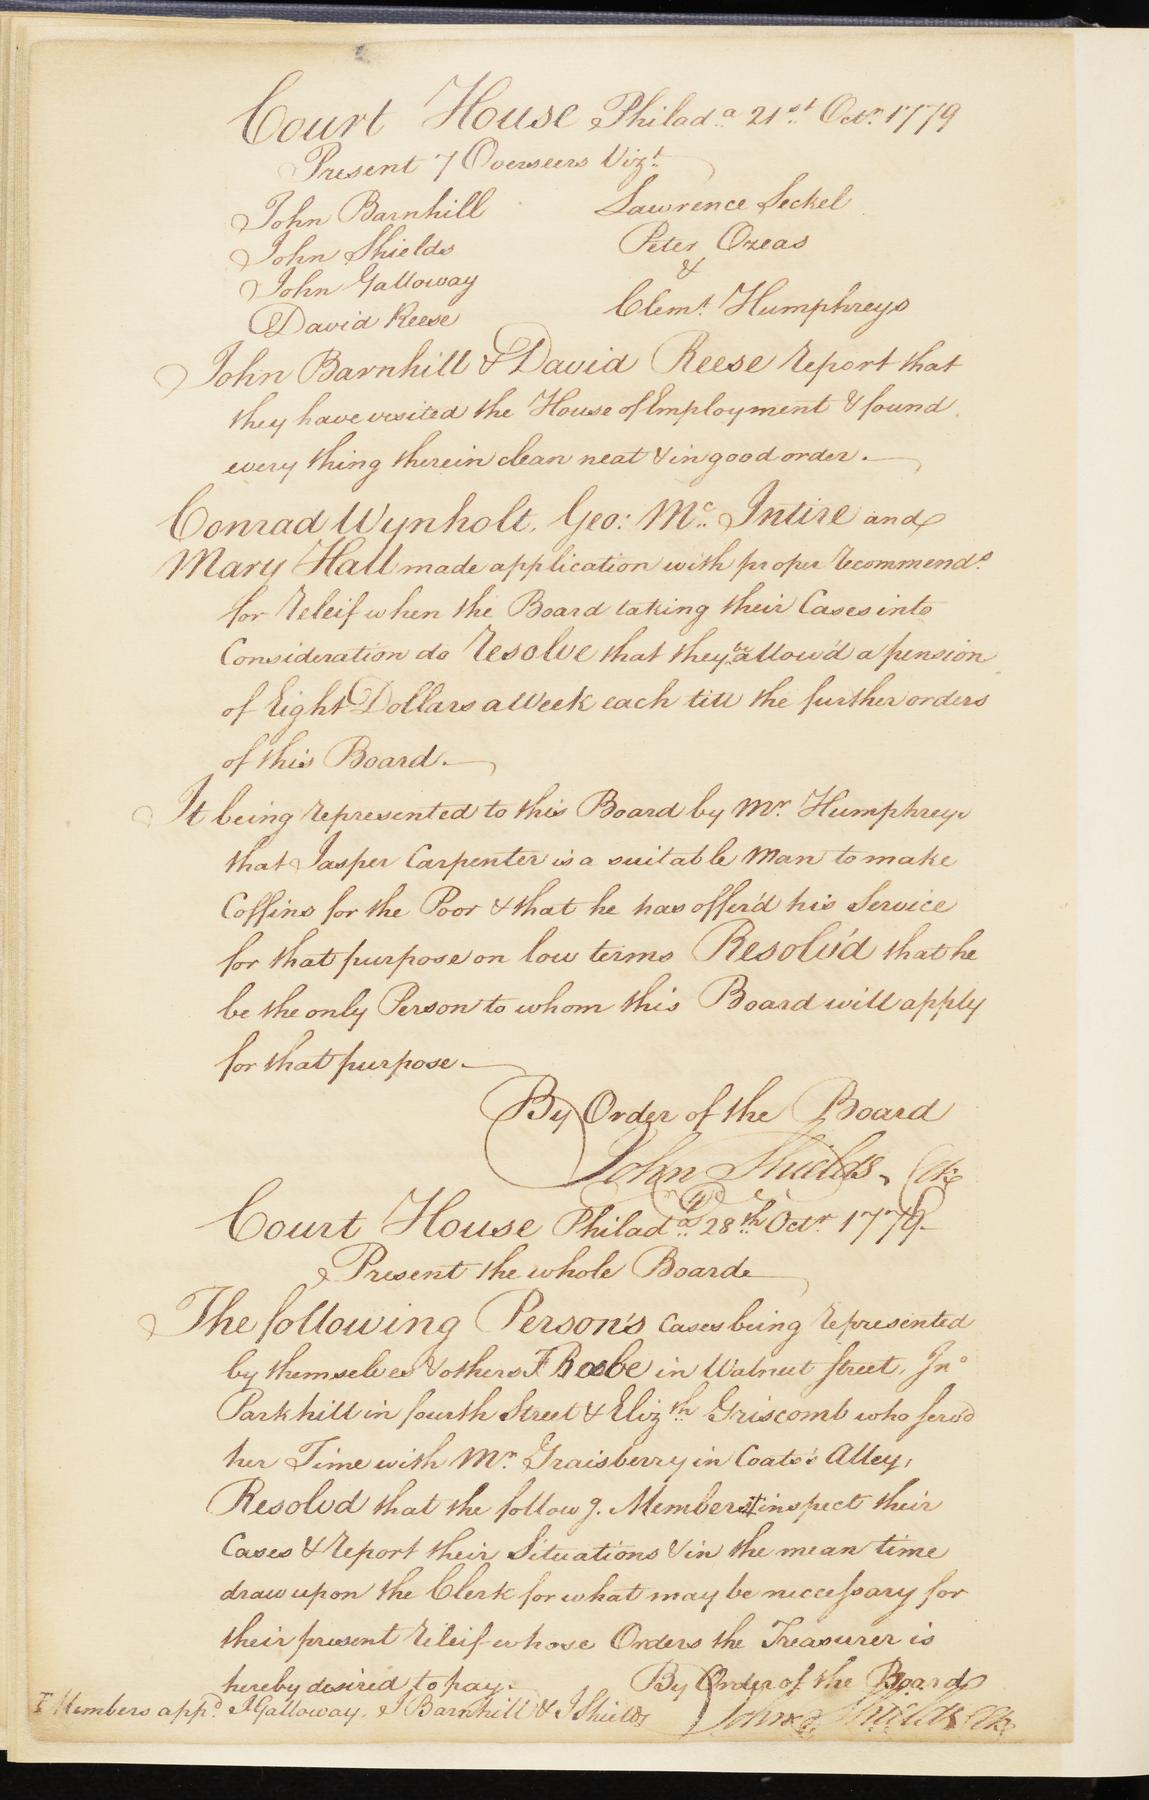 Court House Philad.a 21st Octr. 1779
Present 7 Overseers Vizt.
John Barnhill
John Shields
John Galloway
David Reese
Lawrence Seckel
Peter Ozeas
&
Clemt. Humphreys
John Barnhill & David Reese report that
they have visited the House of Employment & found
every thing therein clean neat & in good order.
Conrad Wynholt, Geo: Mc. Intire and
Mary Hall made application with proper recommends.
for releif when the Board taking their Cases into
Consideration do resolve that they be allow'd a pension
of Eight Dollars a Week each till the further orders
of this Board.
It being represented to this Board by Mr. Humphreys
that Jasper Carpenter is a suitable Man to make
Coffins for the Poor & that he has offer'd his Service
for that purpose on low terms Resolv'd that he
be the only Person to whom this Board will apply
for that purpose.
By Order of the Board
John Shields, Clk
Court House Philad.a 28th Octr. 1779
Present the whole Board
The following Person's cases being represented
by themselves & others in Walnut Street, Jno
Parkhill in fourth Street & Elizth Griscomb who serv'd
her Time with Mr. Graisberry in Coats's Alley,
Resolvd that the followg. Members ‡ inspect their
Cases & report their Situations & in the mean time
draw upon the Clerk for what may be neccessary for
their present releif whose Orders the Treasurer is
hereby desired to pay. By Order of the Board
‡ Members appd. J Galloway, J Barnhill & J Shields John Shields Clk